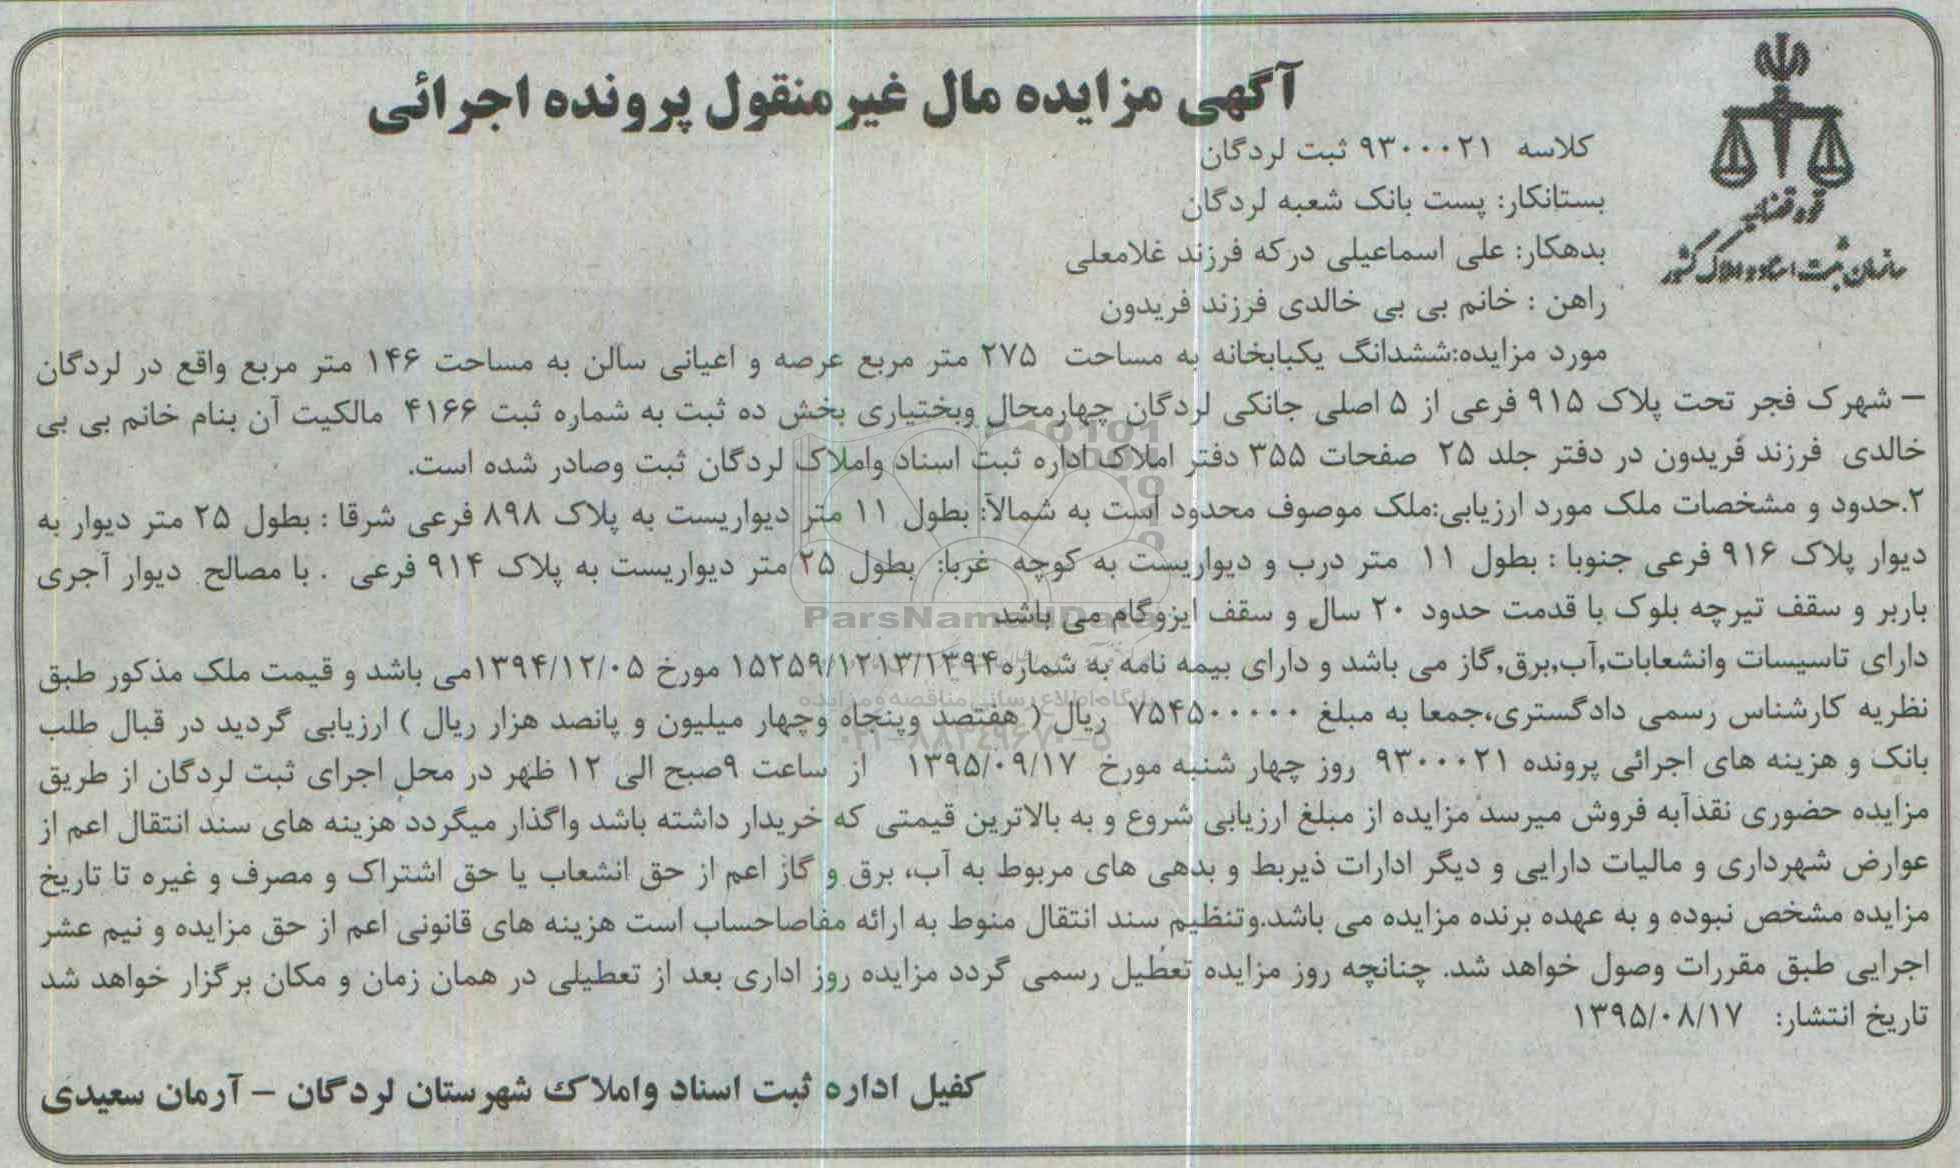 قوه قضاییه
سازمان ثبت اسناد و املاک کشور
آگهی مزایده مال غیرمنقول پرونده اجرائی
کلاسه ۹۳۰۰۰۲۱ ثبت لردگان
بستانکار: پست بانک شعبه لردگان
بدهکار: علی اسماعیلی درکه فرزند غلامعلی
راهن : خانم بی بی خالدی فرزند فریدون
مورد مزایده:ششدانگ یکبابخانه به مساحت ۲۷۵ متر مربع عرصه و اعیانی سالن به مساحت ۱۴۶ متر مربع واقع در لردگان
– شهرک فجر تحت پلاک ۹۱۵ فرعی از ۵ اصلی جانکی لردگان چهارمحال وبختیاری بخش ده ثبت به شماره ثبت ۴۱۶۶ مالکیت آن بنام خانم بی بی
خالدی فرزند فریدون در دفتر جلد ۲۵ صفحات ۳۵۵ دفتر املاک اداره ثبت اسناد واملاک لردگان ثبت وصادر شده است.
۲.حدود و مشخصات ملک مورد ارزیابی:ملک موصوف محدود است به شمالآ: بطول ۱۱ متر دیواریست به پلاک ۸۹۸ فرعی شرقا : بطول ۲۵ متر دیوار به
دیوار پلاک ۹۱۶ فرعی جنوبا : بطول ۱۱ متر درب و دیواریست به کوچه غربا: بطول ۲۵ متر دیواریست به پلاک ۹۱۴ فرعی . با مصالح دیوار آجری
باربر و سقف تیرچه بلوک با قدمت حدود ۲۰ سال و سقف ایزوگام می باشد
دارای تاسیسات وانشعابات,آب,برق,گاز می باشد و دارای بیمه نامه به شماره۱۵۲۵۹/۱۲۱۳/۱۳۹۴ مورخ ۱۳۹۴/۱۲/۰۵می باشد و قیمت ملک مذکور طبق
نظریه کارشناس رسمی دادگستری،جمعا به مبلغ ۷۵۴۵۰۰۰۰۰ ریال ( هفتصد وپنجاه وچهار میلیون و پانصد هزار ریال ) ارزیابی گردید در قبال طلب
بانک و هزینه های اجرائی پرونده ۹۳۰۰۰۲۱ روز چهار شنبه مورخ ۱۳۹۵/۰۹/۱۷ از ساعت ۹صبح الی ۱۲ ظهر در محل اجرای ثبت لردگان از طریق
مزایده حضوری نقدآبه فروش میرسد مزایده از مبلغ ارزیابی شروع و به بالاترین قیمتی که خریدار داشته باشد واگذار میگردد هزینه های سند انتقال اعم از
عوارض شهرداری و مالیات دارایی و دیگر ادارات ذیربط و بدهی های مربوط به آب، برق و گاز اعم از حق انشعاب یا حق اشتراک و مصرف و غیره تا تاریخ
مزایده مشخص نبوده و به عهده برنده مزایده می باشد.وتنظیم سند انتقال منوط به ارائه مفاصاحساب است هزینه های قانونی اعم از حق مزایده و نیم عشر
اجرایی طبق مقررات وصول خواهد شد. چنانچه روز مزایده تعطیل رسمی گردد مزایده روز اداری بعد از تعطیلی در همان زمان و مکان برگزار خواهد شد
تاریخ انتشار: ۱۳۹۵/۰۸/۱۷
کفیل اداره ثبت اسناد واملاک شهرستان لردگان – آرمان سعیدی
ParsNamadData
پایگاه اطلاع رسانی مناقصه و مزایده
۰۲۱-۸۸۳۴۹۶۷۰-۵